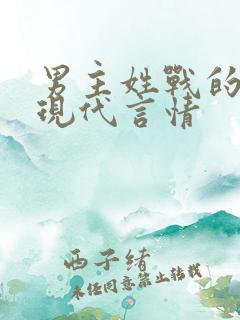 男主姓戰的
現代言情
西子緒
未经同意禁止转载